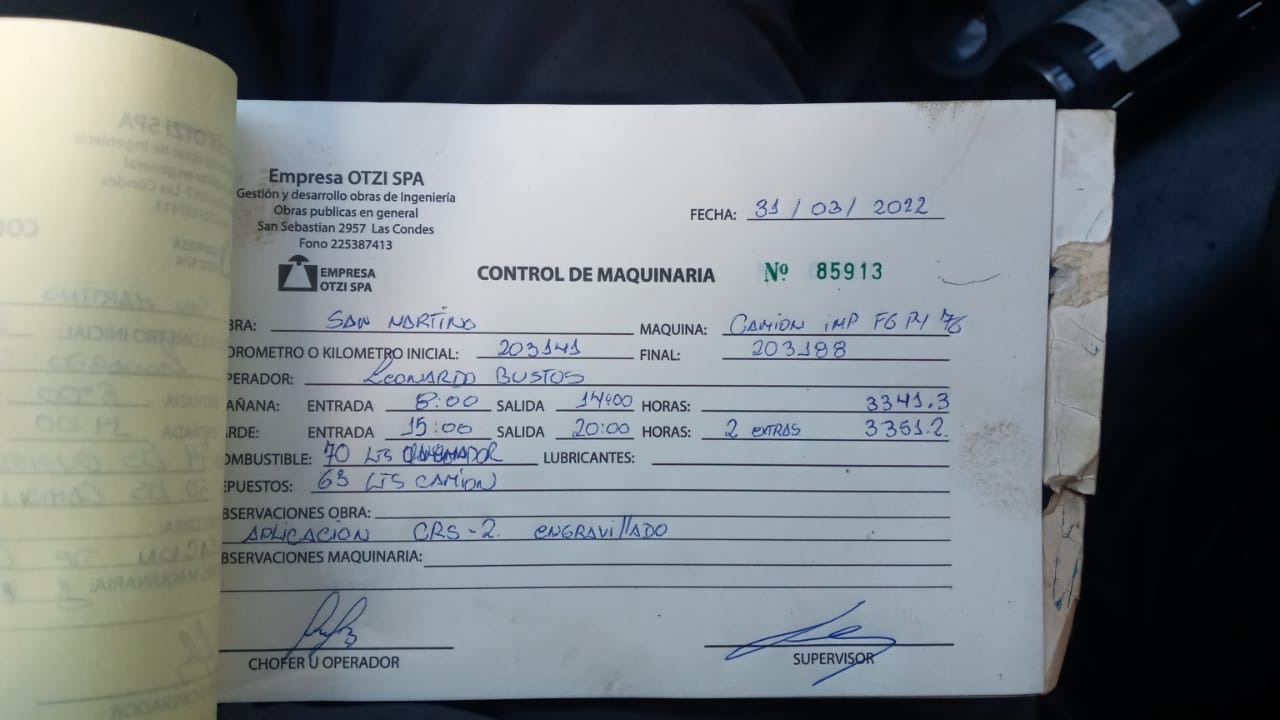 Empresa OTZI SPA
Gestión y desarrollo obras de Ingeniería
Obras publicas en general
San Sebastian 2957 Las Condes
Fono 225387413
FECHA: 31 / 03 / 2022
EMPRESA
OTZI SPA
CONTROL DE MAQUINARIA Nº 85913
BRA: SAN MARTINO MAQUINA: CAMION IMP FG PY 76
OROMETRO O KILOMETRO INICIAL: 203141 FINAL: 203188
PERADOR: LEONARDO BUSTOS
AÑANA: ENTRADA 8:00 SALIDA 14:00 HORAS: 3341.3
ARDE: ENTRADA 15:00 SALIDA 20:00 HORAS: 2 EXTRAS 3351.2.
OMBUSTIBLE: 70 LTS LUBRICANTES:
EPUESTOS: 63 LTS CAMION
BSERVACIONES OBRA:
APLICACION CRS-2. ENGRAVILLADO
BSERVACIONES MAQUINARIA:
CHOFER U OPERADOR SUPERVISOR